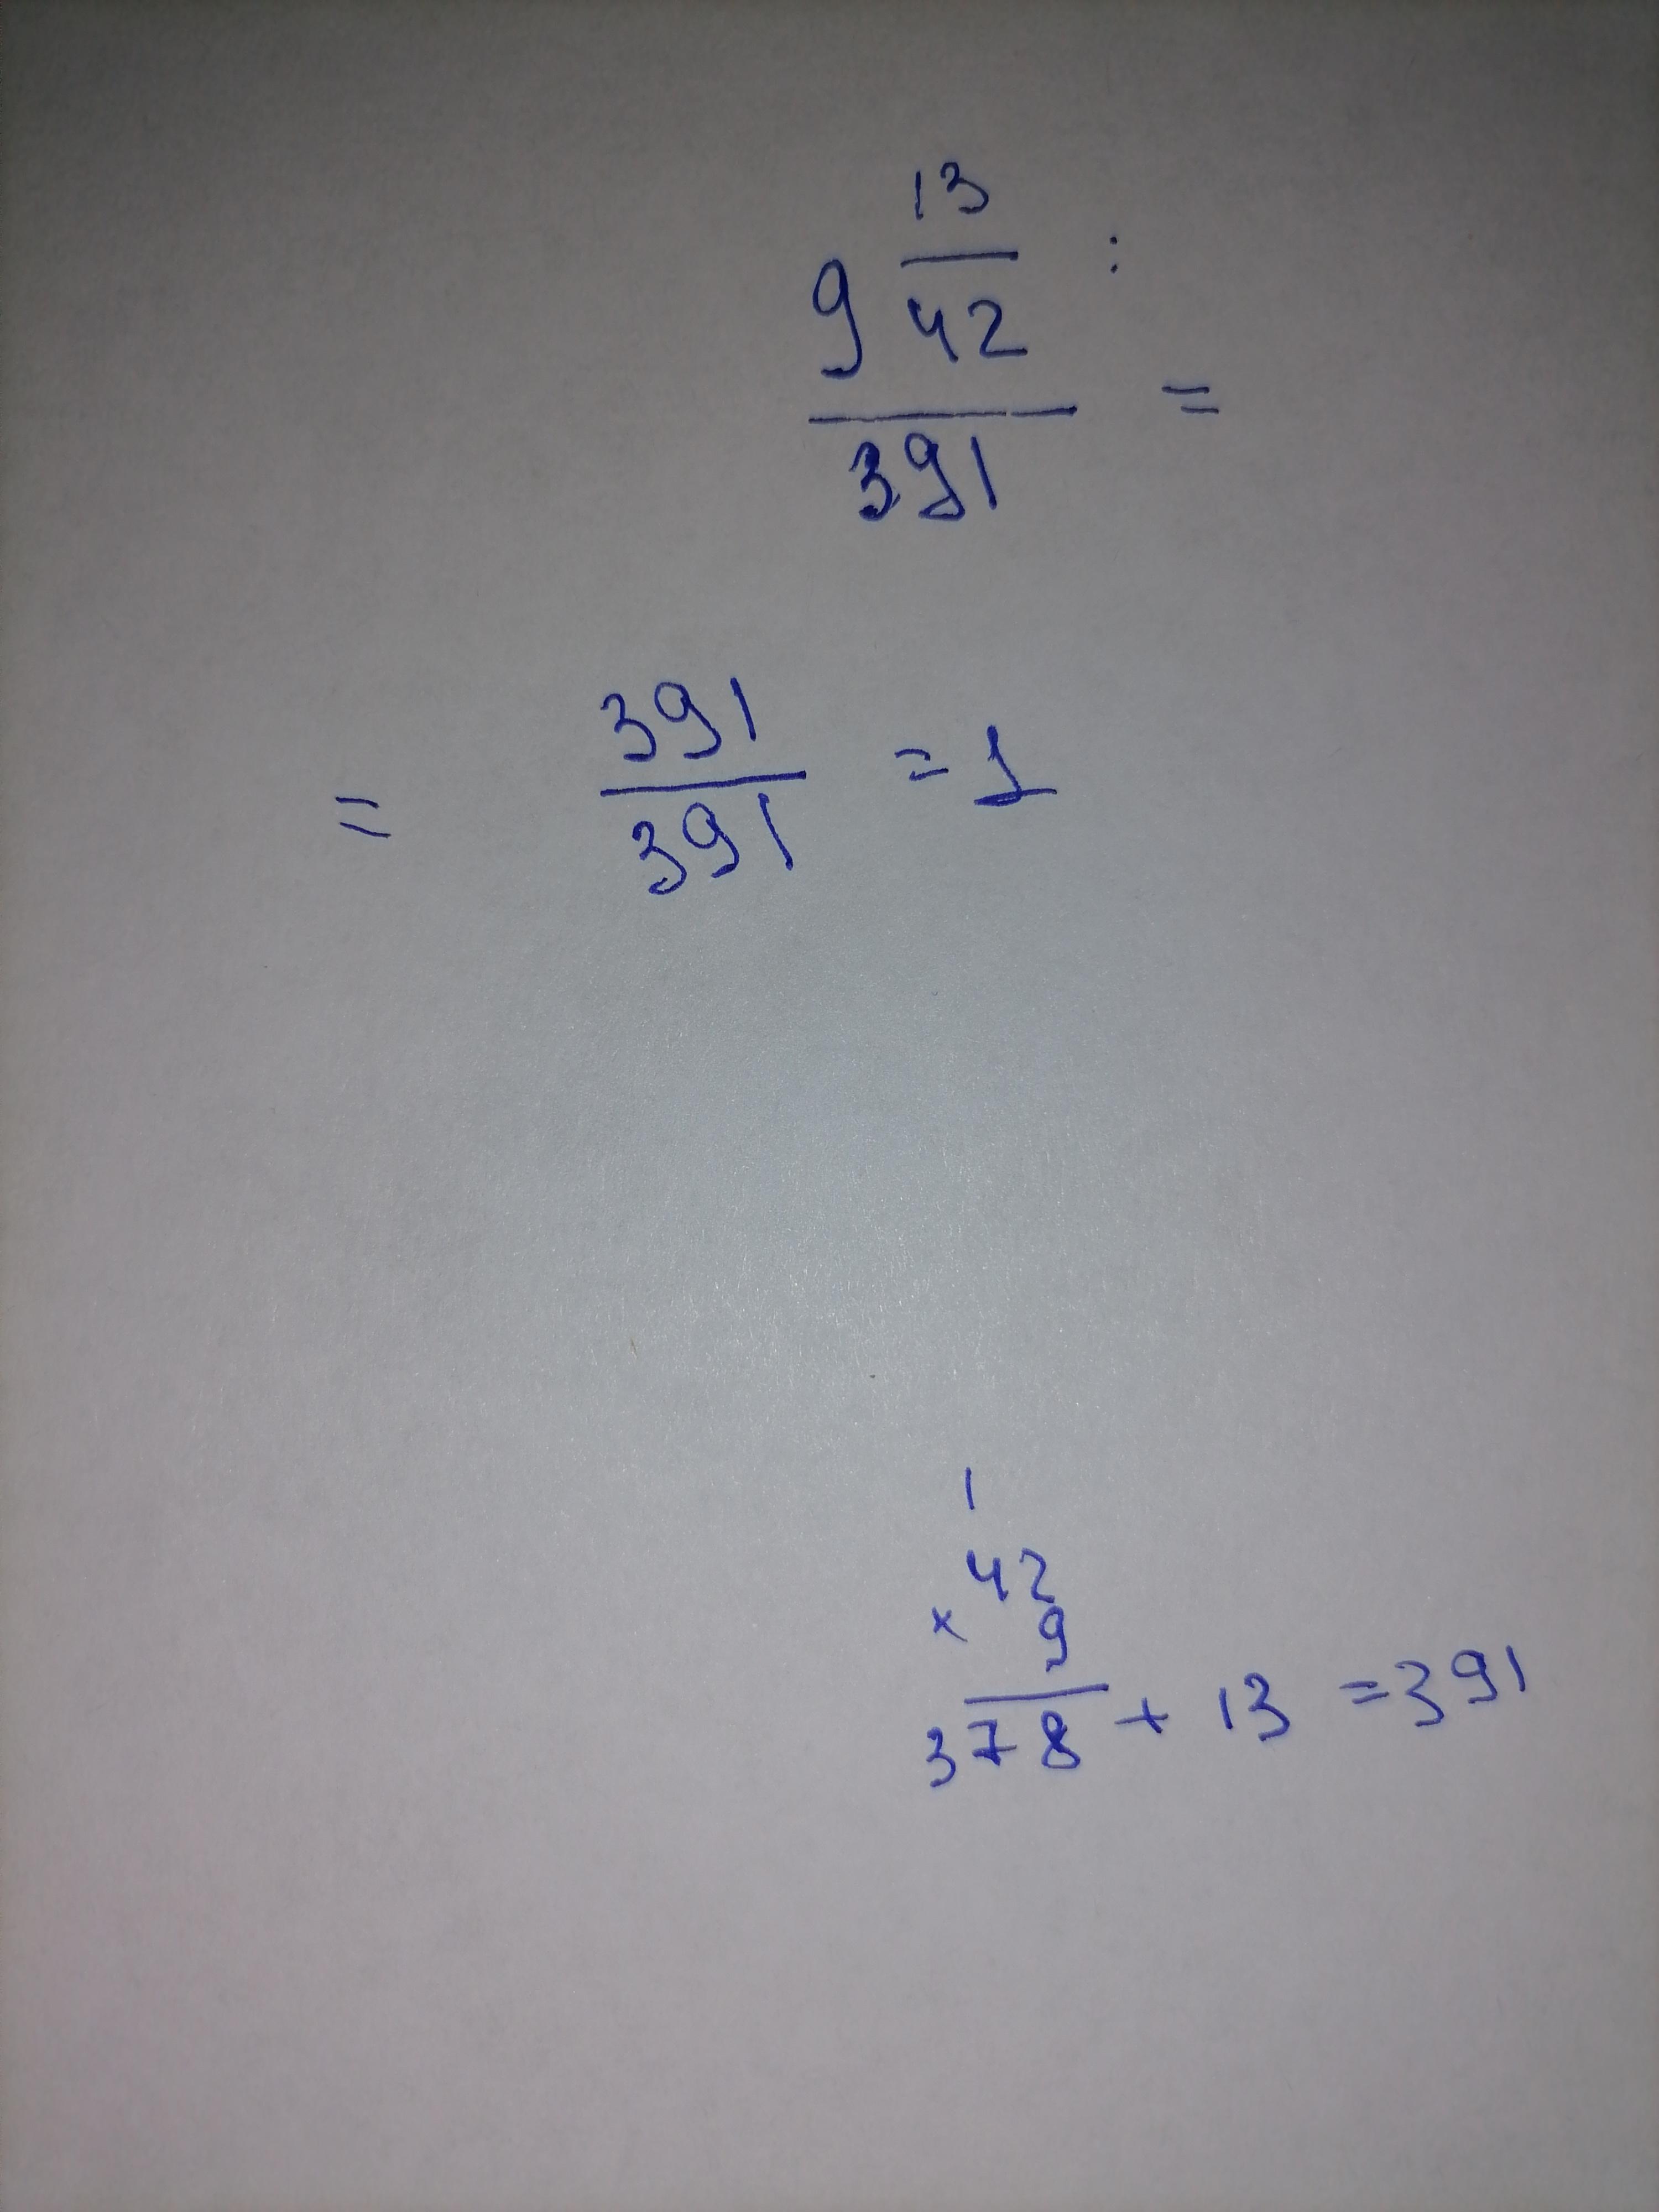 13
9 — :
42
——— =
391
391
= ——— = 1
391
1
42
× 9
———
378 + 13 = 391